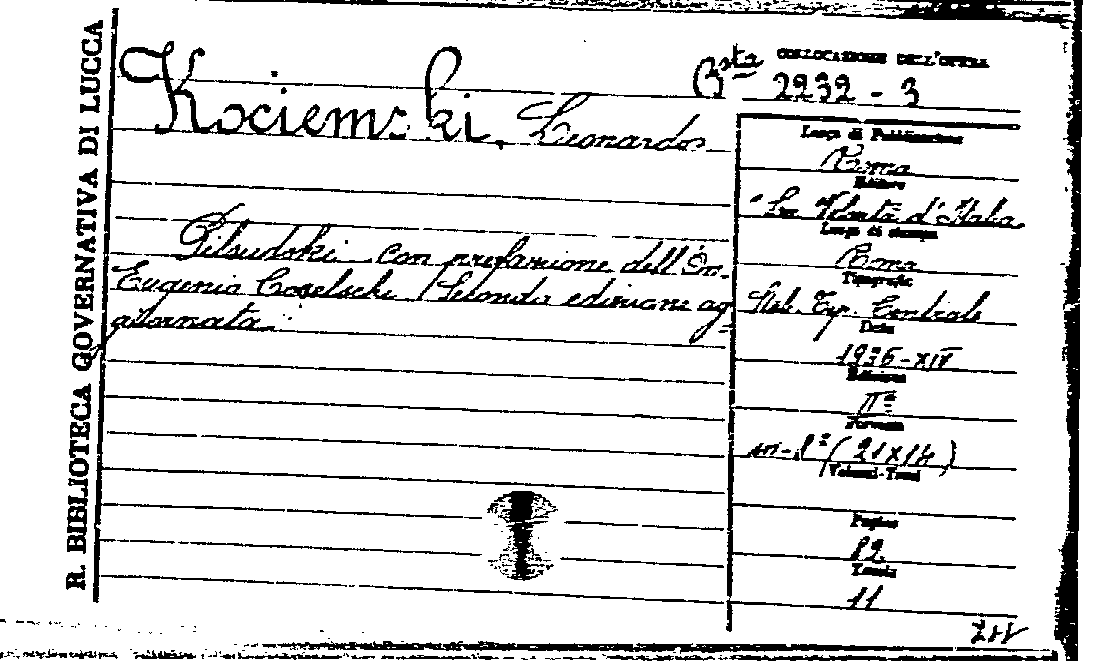 R. BIBLIOTECA GOVERNATIVA DI LUCCA
Kociemski, Leonardo
Pilsudski con prefazione dell'On.
Eugenio Coselschi (Seconda edizione ag=
giornata.
COLLOCAZIONE DELL'OPERA
Bsta 2232 - 3
Luogo di Pubblicazione
Roma
Editore
"La Volontà d'Italia
Luogo di stampa
Roma
Tipografia
Stab. Tip. Centrale
Data
1936-XIV
Edizione
IIª
Formato
in-8° (21x14)
Volumi-Tomi
Pagine
82
Tavole
11